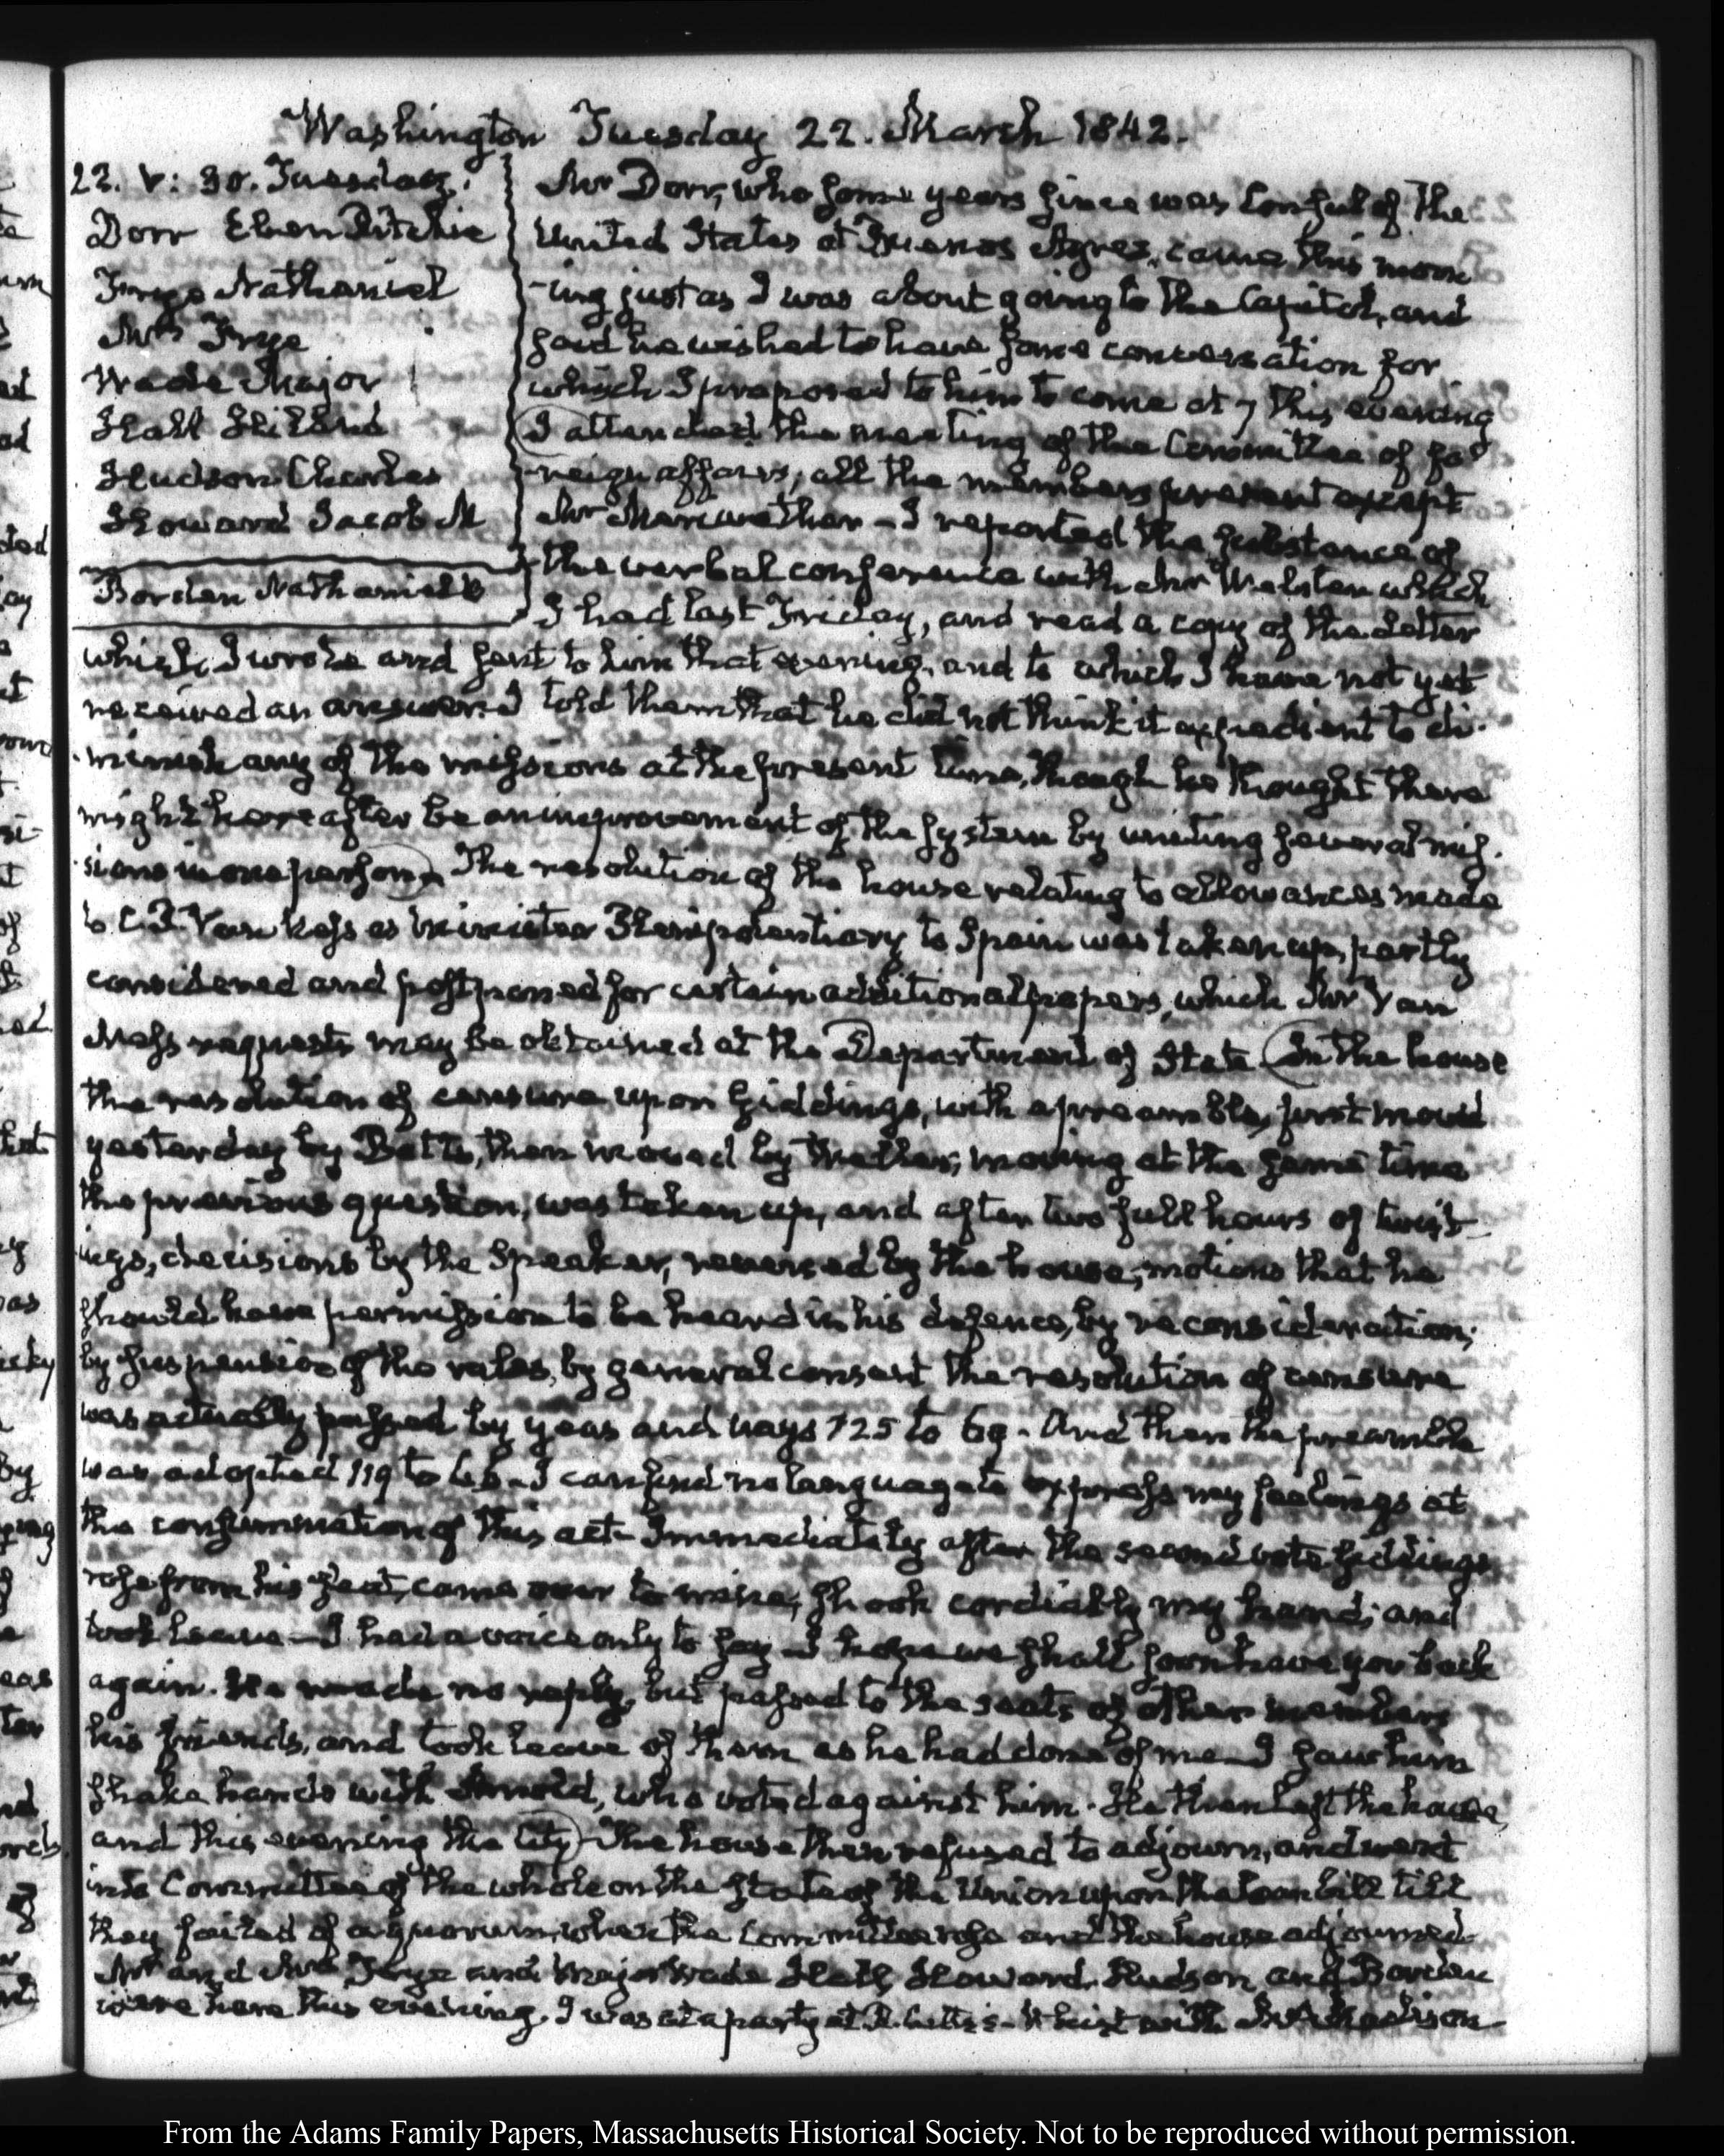 Washington Tuesday 22. March 1842.
22. V: 30. Tuesday.
Dorr Eben Ritchie
Frye Nathaniel
Mrs Frye
Wade Major
Hall Hiland
Hudson Charles
Howard Jacob M
Borden Nathaniel B
Mr Dorr, who some years since was Consul of the
United States at Buenos Ayres, came this morn
-ing just as I was about going to the Capitol, and
said he wished to have some conversation for
which I proposed to him to come at 7 this evening
I attended the meeting of the Committee of fo-
-reign affairs, all the members present except
Mr Meriwether - I reported the substance of
the verbal conference with Mr Webster which
I had last Friday, and read a copy of the Letter
which I wrote and sent to him that evening, and to which I have not yet
received an answer. I told them that he did not think it expedient to di-
-minish any of the missions at the present time, though he thought there
might hereafter be an improvement of the system by uniting several mis-
-sions in one person. The resolution of the house relating to allowances made
to C. P. Van Ness as Minister Plenipotentiary to Spain was taken up, partly
considered and postponed for certain additional papers, which Mr Van
Ness requests may be obtained at the Department of State. In the house
the resolution of censure upon Giddings, with a preamble, first moved
yesterday by Botts, then moved by Weller, moving at the same time
the previous question, was taken up, and after two full hours of twist-
ings, decisions by the Speaker, reversed by the house, motions that he
should have permission to be heard in his defence, by reconsideration,
by suspension of the rules, by general consent the resolution of censure
was actually passed by yeas and nays 125 to 69. And then the preamble
was adopted 119 to 66 - I can find no language to express my feelings at
the consummation of this act - Immediately after the second vote Giddings
rose from his seat, came over to mine, shook cordially my hand, and
took leave - I had a voice only to say - I hope we shall soon have you back
again. He made no reply, but passed to the seats of other members
his friends, and took leave of them as he had done of me - I saw him
shake hands with Arnold, who voted against him. He then left the house,
and this evening the City. The house then refused to adjourn, and went
into Committee of the whole on the state of the Union upon the Loan bill till
they failed of a quorum, when the Committee rose and the house adjourned
Mr and Mrs Frye and Major Wade Hall, Howard, Hudson and Borden
were here this evening. I was at a party at Whist with Mrs Madison
From the Adams Family Papers, Massachusetts Historical Society. Not to be reproduced without permission.